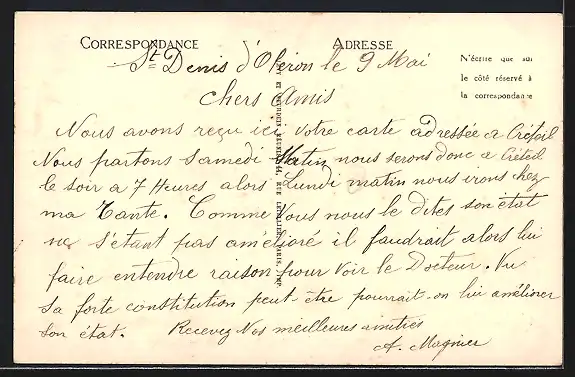 CORRESPONDANCE
ADRESSE
N'écrire que sur
le côté réservé à
la correspondance
St Denis d'Oléron le 9 Mai
chers Amis
Nous avons reçu ici votre carte adressée a Créteil
Nous partons Samedi Matin nous serons donc a Créteil
le soir a 7 Heures alors Lundi matin nous irons chez
ma Tante. Comme Vous nous le dites son état
ne s'étant pas amélioré il faudrait alors lui
faire entendre raison pour voir le Docteur. Vu
sa forte constitution peut être pourrait-on lui améliorer
son état. Recevez Nos meilleures amitiés
A. Magnier